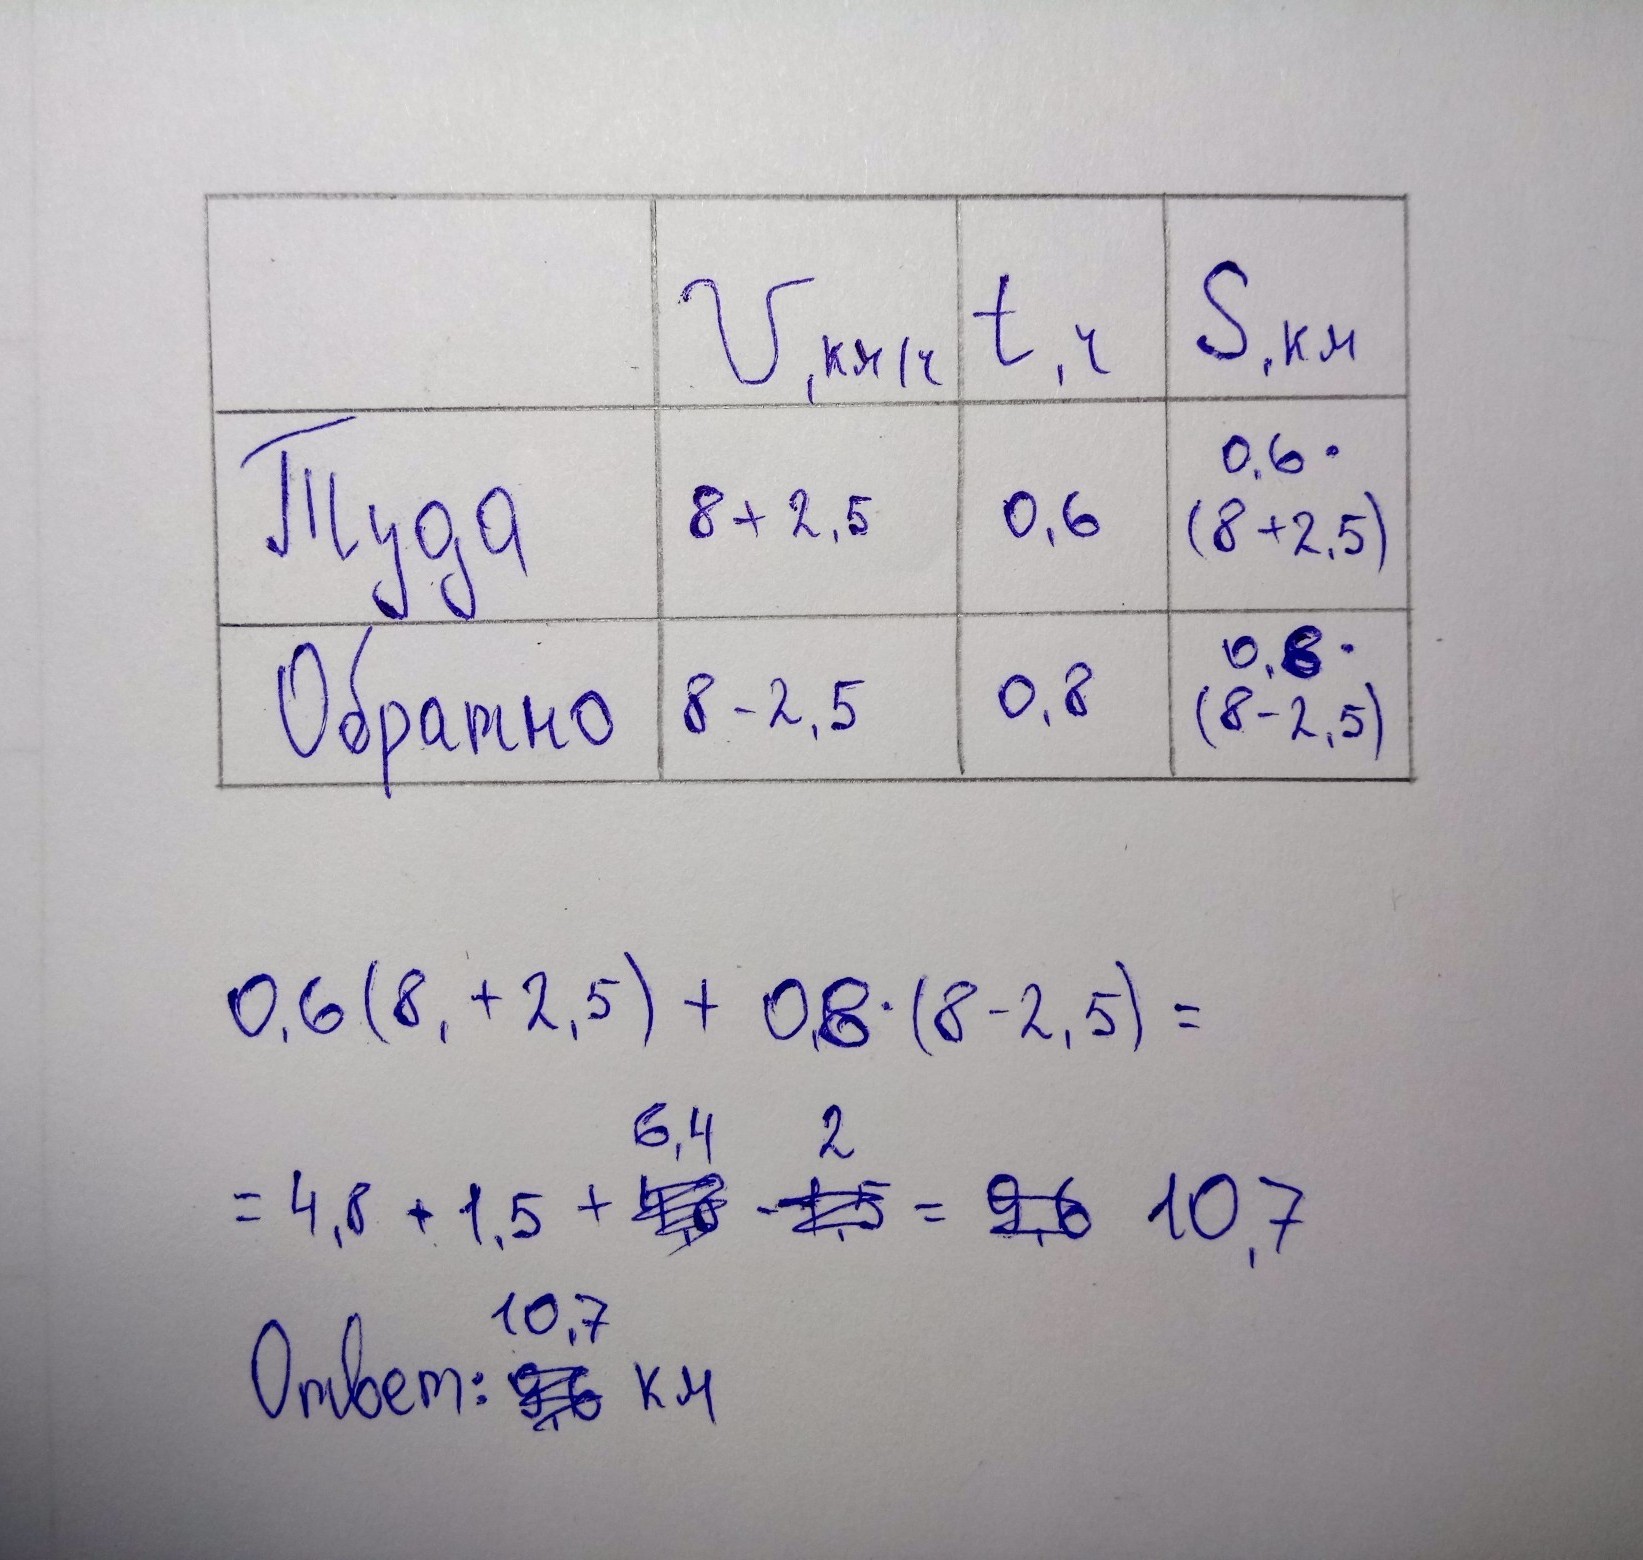 V, км/ч t, ч S, км
Туда 8+2,5 0,6 0,6· (8+2,5)
Обратно 8-2,5 0,8 0,8· (8-2,5)
0,6(8,+2,5) + 0,8·(8-2,5) =
6,4 2
= 4,8 + 1,5 + 4,8 - 1,5 = 9,6 10,7
10,7
Ответ: 9,6 км